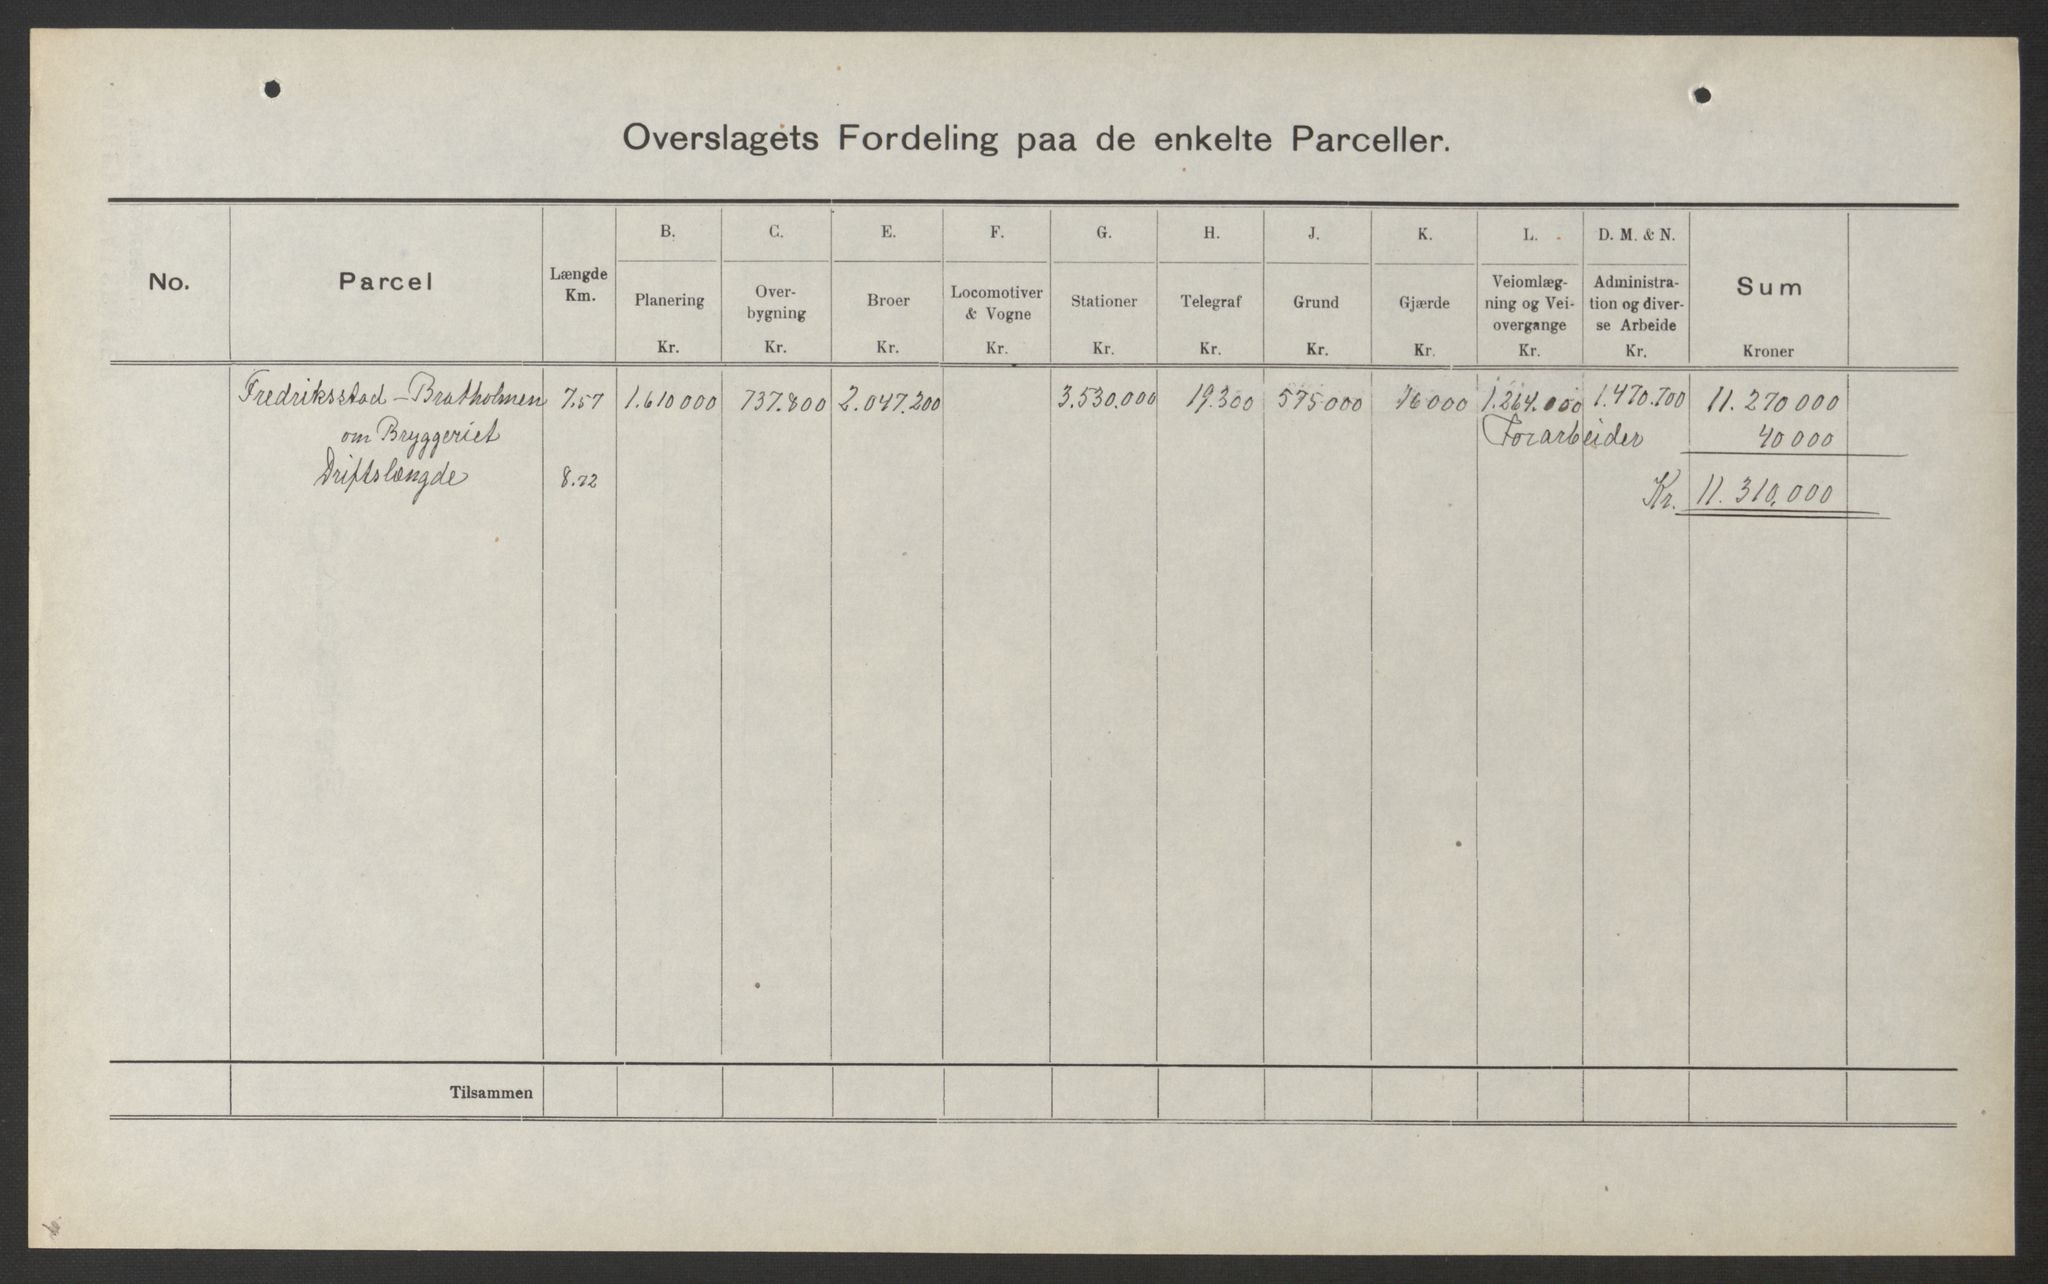 Overslagets Fordeling paa de enkelte Parceller.
No.
Parcel
Længde
Km.
B.
Planering
Kr.
C.
Over-
bygning
Kr.
E.
Broer
Kr.
F.
Locomotiver
& Vogne
Kr.
G.
Stationer
Kr.
H.
Telegraf
Kr.
J.
Grund
Kr.
K.
Gjærde
Kr.
L.
Veiomlæg-
ning og Vei-
overgange
Kr.
D. M. & N.
Administra-
tion og diver-
se Arbeide
Kr.
Sum
Kroner
Fredriksstad - Bratholmen 7.57 1.610000 737.800 2.047.200 3.530.000 19.300 575000 16000 1.264.000 1.470.700 11.270000
om Bryggeriet Forarbeider 40000
Driftslængde 8.72 Kr. 11.310,000
Tilsammen